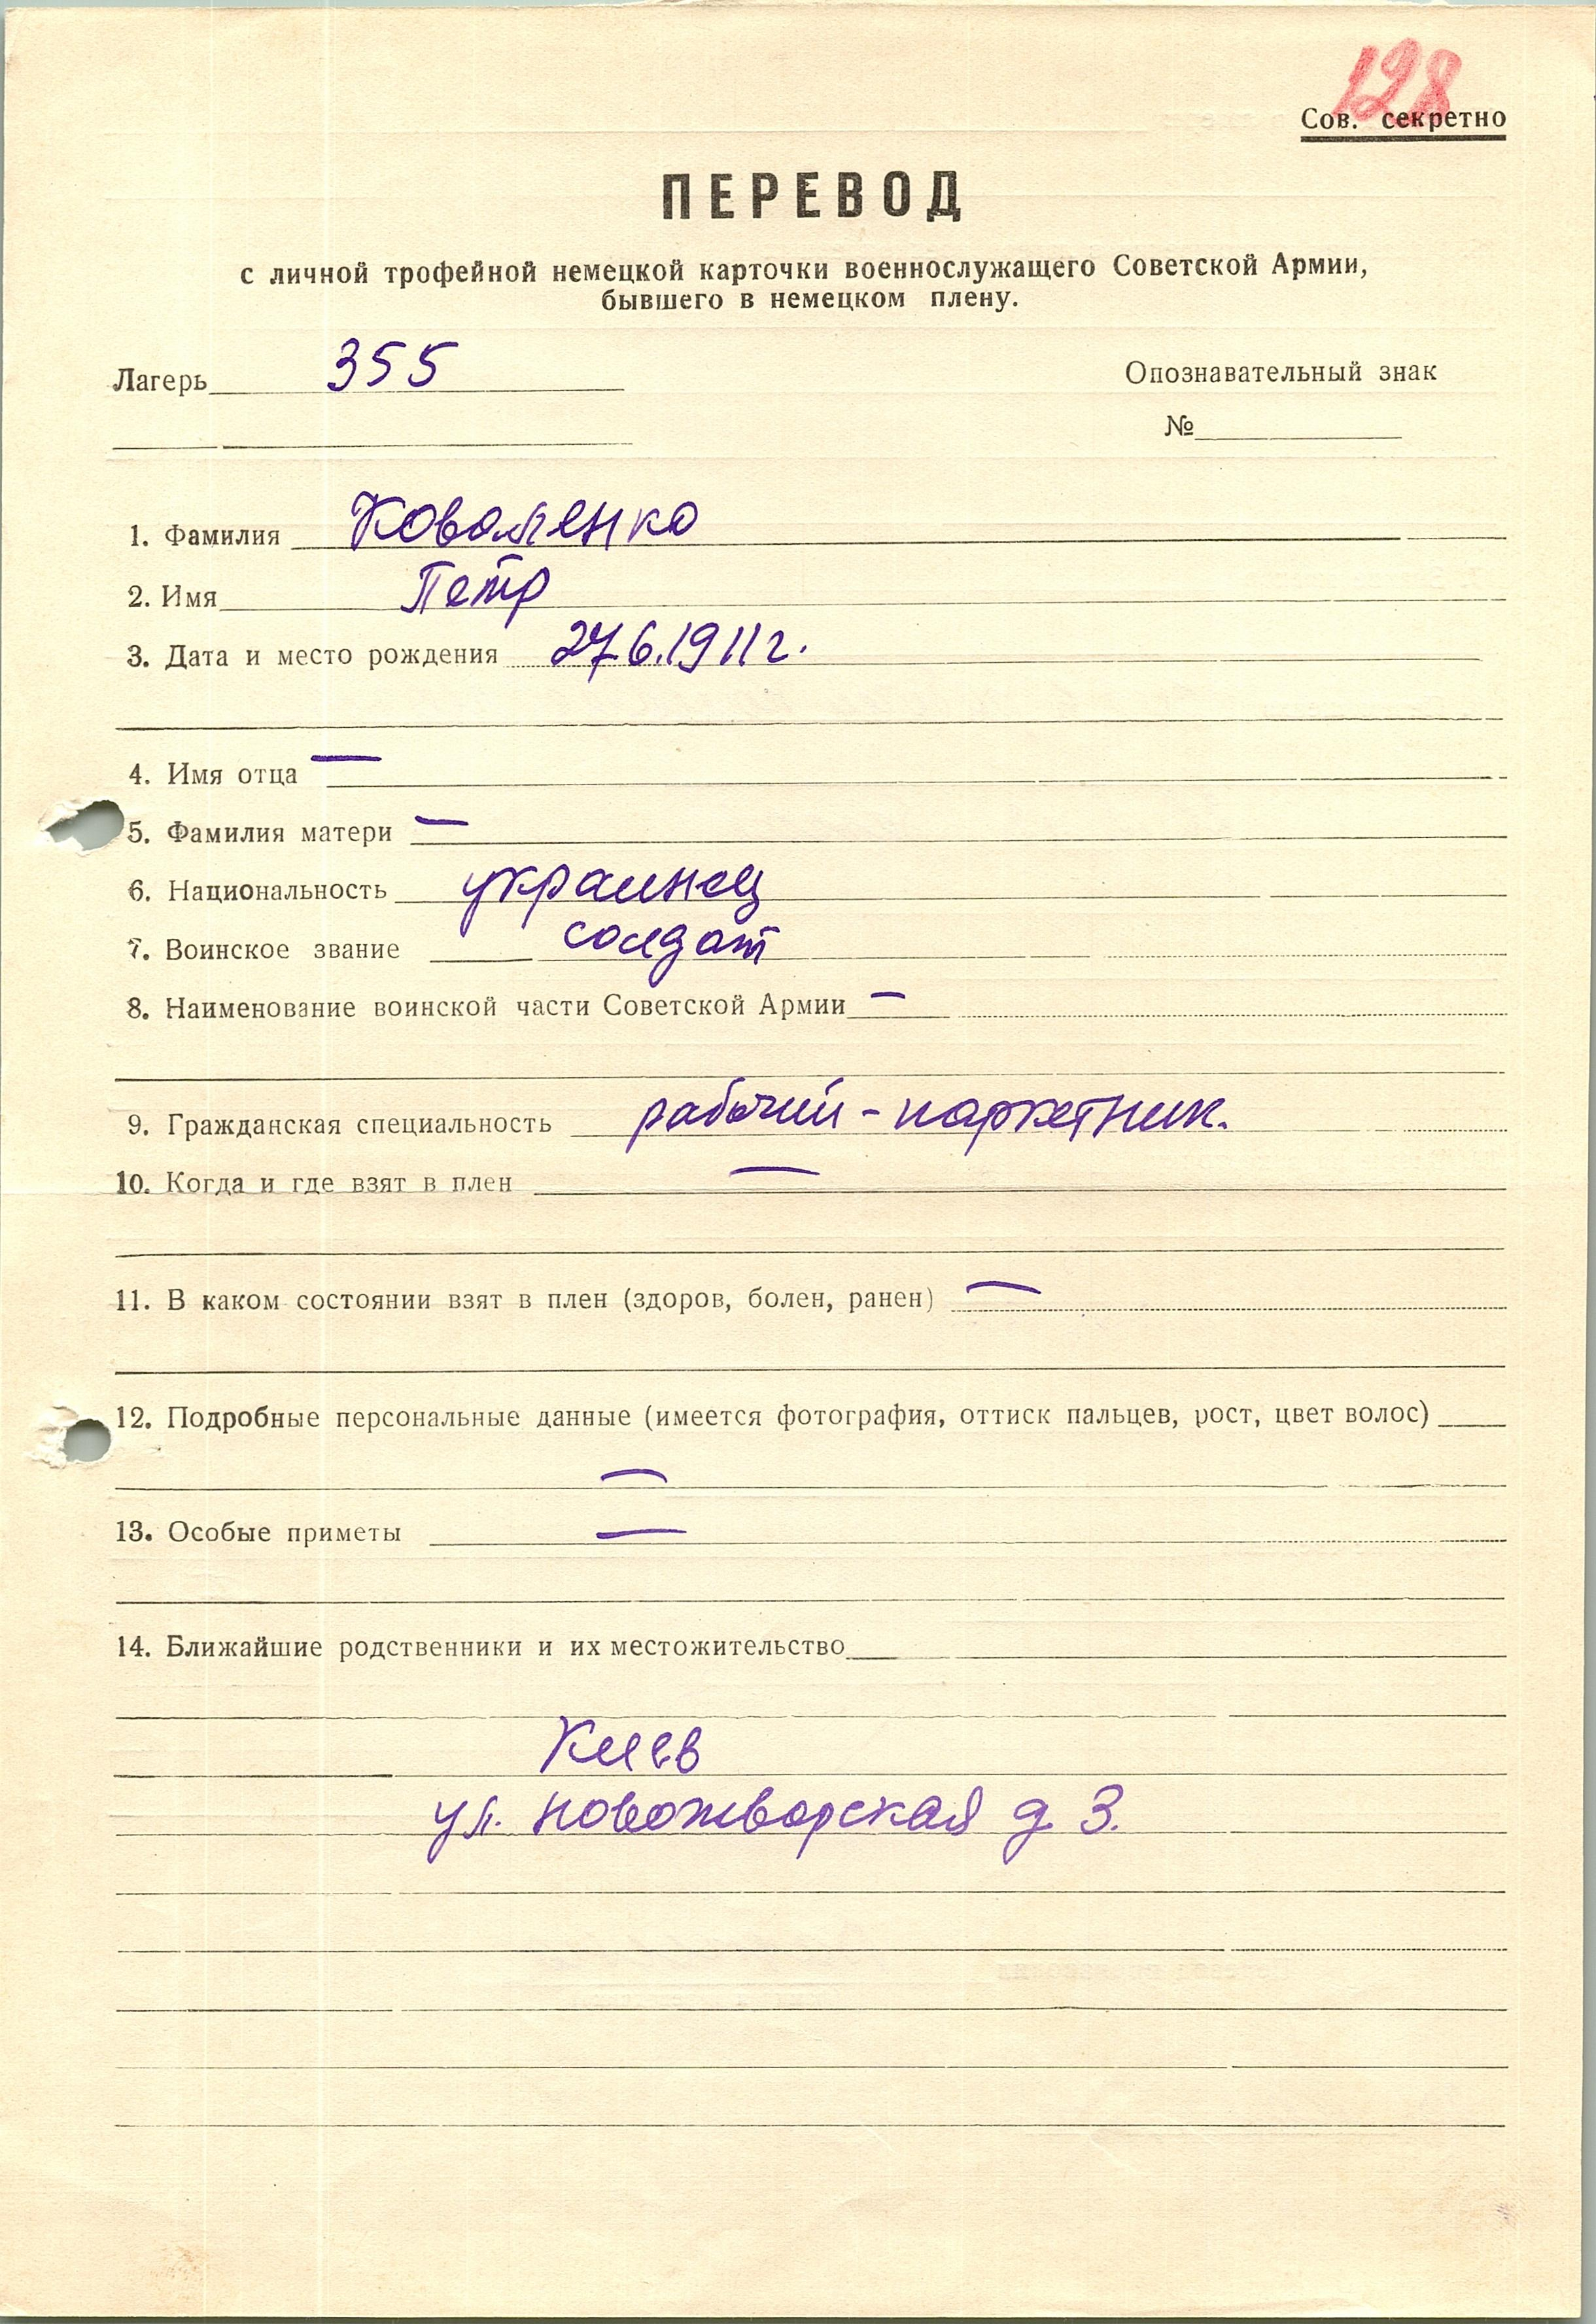 128
Сов. секретно
ПЕРЕВОД
с личной трофейной немецкой карточки военнослужащего Советской Армии,
бывшего в немецком плену.
Лагерь 355
Опознавательный знак
№
1. Фамилия Коваленко
2. Имя Петр
3. Дата и место рождения 27.6.1911г.
4. Имя отца —
5. Фамилия матери —
6. Национальность украинец
7. Воинское звание солдат
8. Наименование воинской части Советской Армии —
9. Гражданская специальность рабочий - паркетник.
10. Когда и где взят в плен —
11. В каком состоянии взят в плен (здоров, болен, ранен) —
12. Подробные персональные данные (имеется фотография, оттиск пальцев, рост, цвет волос)
—
13. Особые приметы —
14. Ближайшие родственники и их местожительство
Киев
ул. д 3.